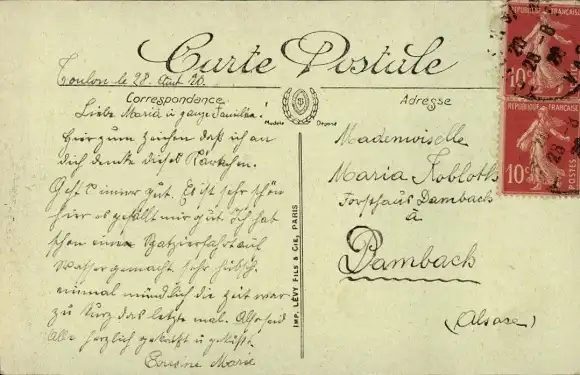 Carte Postale
Toulon le 28. Aut 20.
Correspondance
Adresse
Modèle Déposé
Liebe Maria u ganze Familie!
Hier zum zeichen daß ich an
dich denke dieses Kärtchen.
Geht immer gut. Es ist sehr schön
hier es gefällt mir gut. Ich hat
schon eine Spatzierfahrt auf
Wasser gemacht sehr hübsch.
einmal mündlich die Zeit war
zu kurz das letzte mal. Also seid
Alle herzlich gegrüßt u geküßt.
Cousine Marie
Mademoiselle
Maria Kobloth
Forsthaus Dambach
à
Dambach
(Alsace)
IMP. LÉVY FILS & CIE, PARIS
RÉPUBLIQUE FRANÇAISE
10c
POSTES
RÉPUBLIQUE FRANÇAISE
10c
POSTES